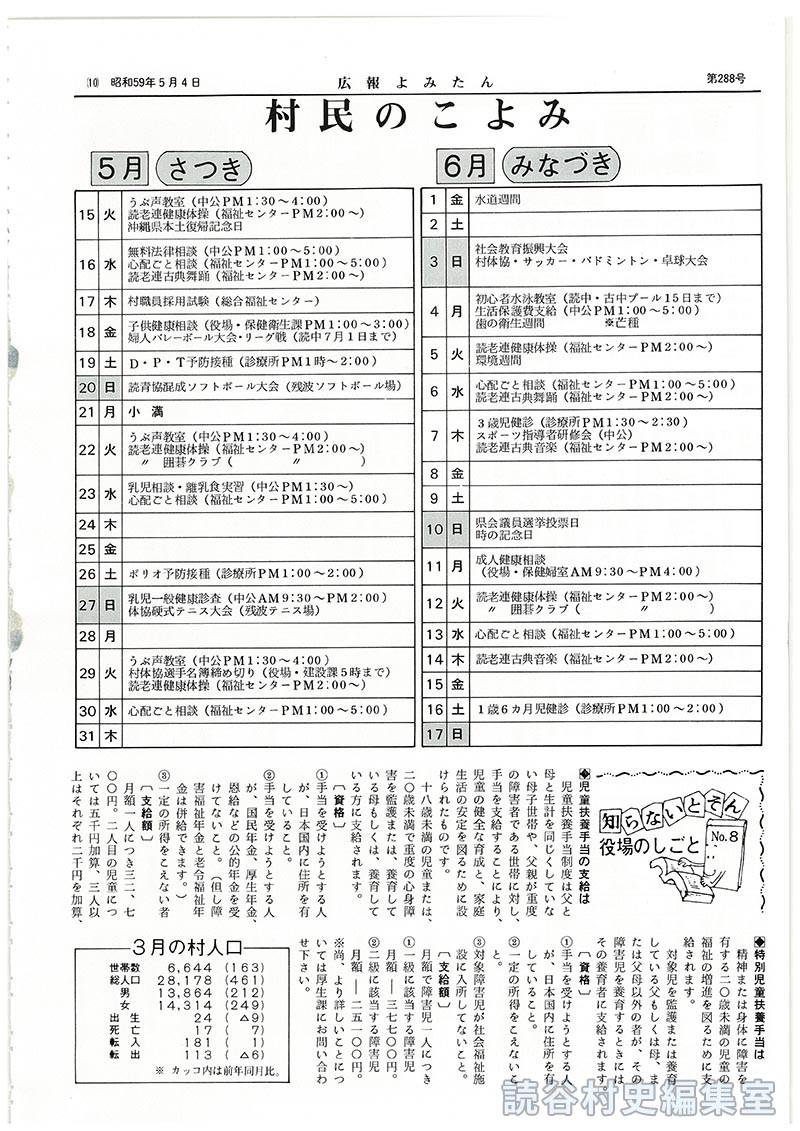 ⑽ 昭和59年5月4日
広報よみたん
第288号
村民のこよみ
5月 さつき
15 火 うぶ声教室（中公PM1:30～4:00）
読老連健康体操（福祉センターPM2:00～）
沖縄県本土復帰記念日
16 水 無料法律相談（中公PM1:00～5:00）
心配ごと相談（福祉センターPM1:00～5:00）
読老連古典舞踊（福祉センターPM2:00～）
17 木 村職員採用試験（総合福祉センター）
18 金 子供健康相談（役場・保健衛生課PM1:00～3:00）
婦人バレーボール大会・リーグ戦（読中7月1日まで）
19 土 D・P・T予防接種（診療所PM1時～2:00）
20 日 読青協混成ソフトボール大会（残波ソフトボール場）
21 月 小満
22 火 うぶ声教室（中公PM1:30～4:00）
読老連健康体操（福祉センターPM2:00～）
〃 囲碁クラブ（ 〃 ）
23 水 乳児相談・離乳食実習（中公PM1:30～）
心配ごと相談（福祉センターPM1:00～5:00）
24 木
25 金
26 土 ポリオ予防接種（診療所PM1:00～2:00）
27 日 乳児一般健康診査（中公AM9:30～PM2:00）
体協硬式テニス大会（残波テニス場）
28 月
29 火 うぶ声教室（中公PM1:30～4:00）
村体協選手名簿締め切り（役場・建設課5時まで）
読老連健康体操（福祉センターPM2:00～）
30 水 心配ごと相談（福祉センターPM1:00～5:00）
31 木
6月 みなづき
1 金 水道週間
2 土
3 日 社会教育振興大会
村体協・サッカー・バドミントン・卓球大会
4 月 初心者水泳教室（読中・古中プール15日まで）
生活保護費支給（中公PM1:00～5:00）
歯の衛生週間 ※芒種
5 火 読老連健康体操（福祉センターPM2:00～）
環境週間
6 水 心配ごと相談（福祉センターPM1:00～5:00）
読老連古典舞踊（福祉センターPM2:00～）
7 木 3歳児健診（診療所PM1:00～2:30）
スポーツ指導者研修会（中公）
読老連古典音楽（福祉センターPM2:00～）
8 金
9 土
10 日 県会議員選挙投票日
時の記念日
11 月 成人健康相談
（役場・保健婦室AM9:30～PM4:00）
12 火 読老連健康体操（福祉センターPM2:00～）
〃 囲碁クラブ（ 〃 ）
13 水 心配ごと相談（福祉センターPM1:00～5:00）
14 木 読老連古典音楽（福祉センターPM2:00～）
15 金
16 土 1歳6カ月児健診（診療所PM1:00～2:00）
17 日
知らないとそん
役場のしごと
No.8
◆児童扶養手当の支給は
児童扶養手当制度は父と
母と生計を同じくしていな
い母子世帯や、父親が重度
の障害者である世帯に対し、
手当を支給することにより、
児童の健全な育成と、家庭
生活の安定を図るために設
けられたものです。
十八歳未満の児童または、
二〇歳未満で重度の心身障
害を監護または、養育して
いる母もしくは、養育して
いる方に支給されます。
〔資格〕
①手当を受けようとする人
が、日本国内に住所を有
していること。
②手当を受けようとする人
が、国民年金、厚生年金、
恩給などの公的年金を受
けてないこと。（但し障
害福祉年金と老令福祉年
金は併給できます。）
③一定の所得をこえない者
〔支給額〕
月額一人につき三二、七
〇〇円。二人目の児童につ
いては五千円加算、三人以
上はそれぞれ二千円を加算、
◆特別児童扶養手当は
精神または身体に障害を
有する二〇歳未満の児童の
福祉の増進を図るために支
給されます。
対象児を監護または養育
している父もしくは母、ま
たは父母以外の者が、その
障害児を養育するときには
その養育者に支給されます。
〔資格〕
①手当を受けようとする人
が、日本国内に住所を有
していること。
②一定の所得をこえないこ
と。
③対象障害児が社会福祉施
設に入所してないこと。
〔支給額〕
月額で障害児一人につき
①一級に該当する障害児
月額―三七七〇〇円。
②二級に該当する障害児
月額―二五一〇〇円。
※尚、より詳しいことにつ
いては厚生課にお問い合わ
せ下さい。
3月の村人口
世帯数 6,644 (163)
総人口 28,178 (461)
男 13,864 (212)
女 14,314 (249)
出生 24 (△9)
死亡 17 (7)
転入 181 (1)
転出 113 (△6)
※ カッコ内は前年同月比。
読谷村史編集室